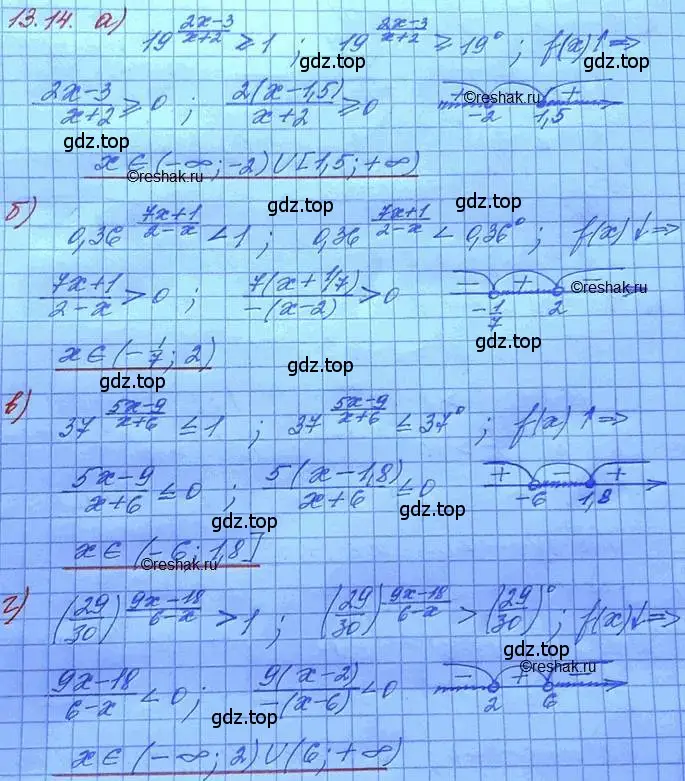 13.14. а)
19^((2x-3)/(x+2)) ≥ 1 ; 19^((2x-3)/(x+2)) ≥ 19° ; f(x)↑⇒
gdz.top gdz.top
(2x-3)/(x+2) ≥ 0 ; 2(x-1,5)/(x+2) ≥ 0 + - + -2 1,5
©reshak.ru
gdz.top gdz.top
x ∈ (-∞; -2) ∪ [1,5; +∞)
©reshak.ru
б)
gdz.top gdz.top
0,36^((7x+1)/(2-x)) < 1 ; 0,36^((7x+1)/(2-x)) < 0,36° ; f(x)↓⇒
(7x+1)/(2-x) > 0 ; 7(x+1/7)/(-(x-2)) > 0 - + - -1/7 2
©reshak.ru
gdz.top
x ∈ (-1/7; 2)
gdz.top gdz.top
в)
37^((5x-9)/(x+6)) ≤ 1 ; 37^((5x-9)/(x+6)) ≤ 37° ; f(x)↑⇒
gdz.top
(5x-9)/(x+6) ≤ 0 ; 5(x-1,8)/(x+6) ≤ 0 + - + -6 1,8
gdz.top gdz.top
x ∈ (-6; 1,8]
©reshak.ru
г)
(29/30)^((9x-18)/(6-x)) > 1 ; (29/30)^((9x-18)/(6-x)) > (29/30)° ; f(x)↓⇒
gdz.top
©reshak.ru
(9x-18)/(6-x) < 0 ; 9(x-2)/(-(x-6)) < 0 - + - 2 6
gdz.top gdz.top
x ∈ (-∞; 2) ∪ (6; +∞)